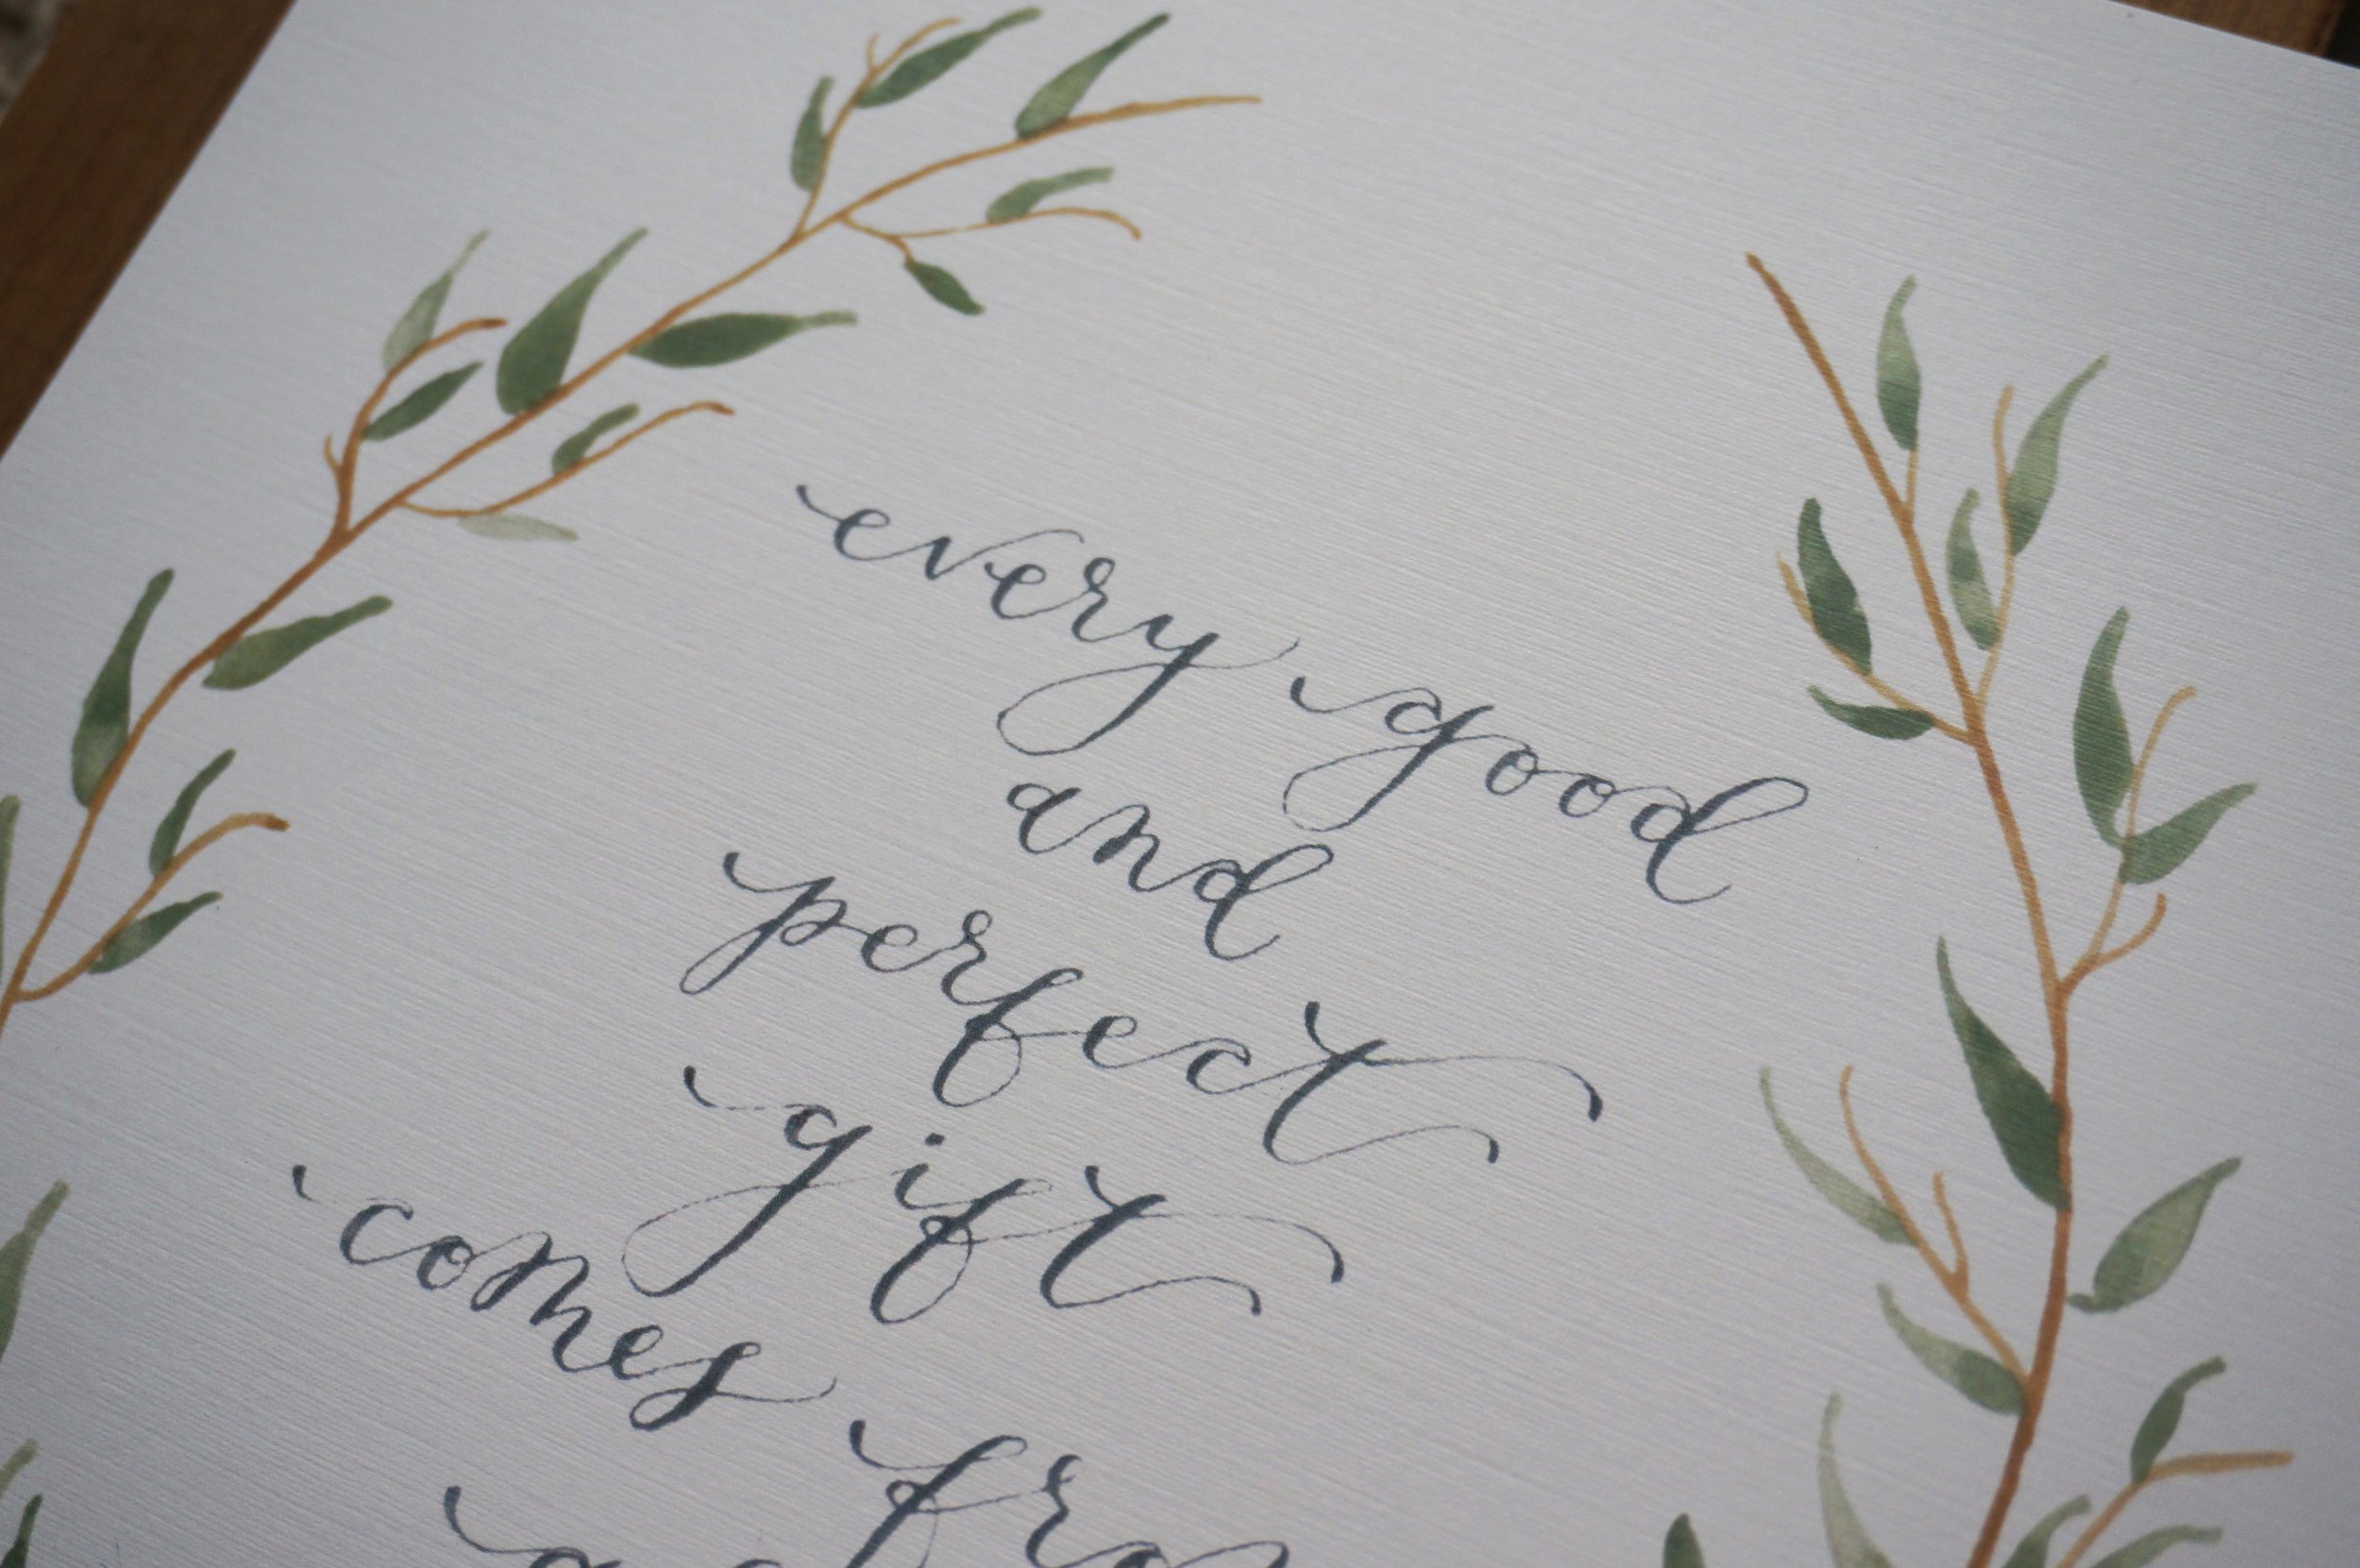 every good
and
perfect
gift
comes from